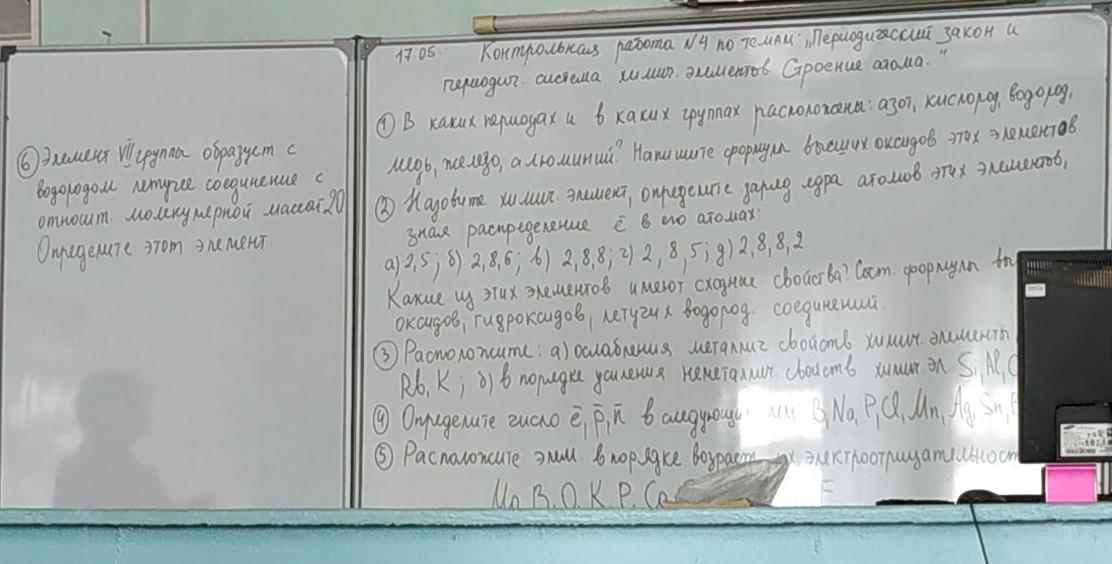 17.05. Контрольная работа №4 по темам: „Периодический закон и
периодич. система химич. элементов Строение атома."
① В каких периодах и в каких группах расположены: азот, кислород, водород,
медь, железо, алюминий? Напишите формулы высших оксидов этих элементов
② Назовите химич. элемент, определите заряд ядра атомов этих элементов,
зная распределение ē в его атомах:
а) 2,5; б) 2,8,6; в) 2,8,8; г) 2,8,5; д) 2,8,8,2
Какие из этих элементов имеют сходные свойства? Сост. формулы
оксидов, гидроксидов, летучих водород. соединений.
③ Расположите: а) ослабления металлич свойств химич. элементы
Rb, K; б) в порядке усиления неметаллич. свойств химич. эл. Si, Al,
④ Определите число ē, p̄, n̄ в B, Na, P, Cl, Mn, Ag, Sn,
⑤ Расположите элем. в порядке возраст электроотрицательност
B, O, K, P, F
⑥ Элемент VII группы образует с
водородом летучее соединение с
относит. молекулярной массой 20
Определите этот элемент.
SAMSUNG